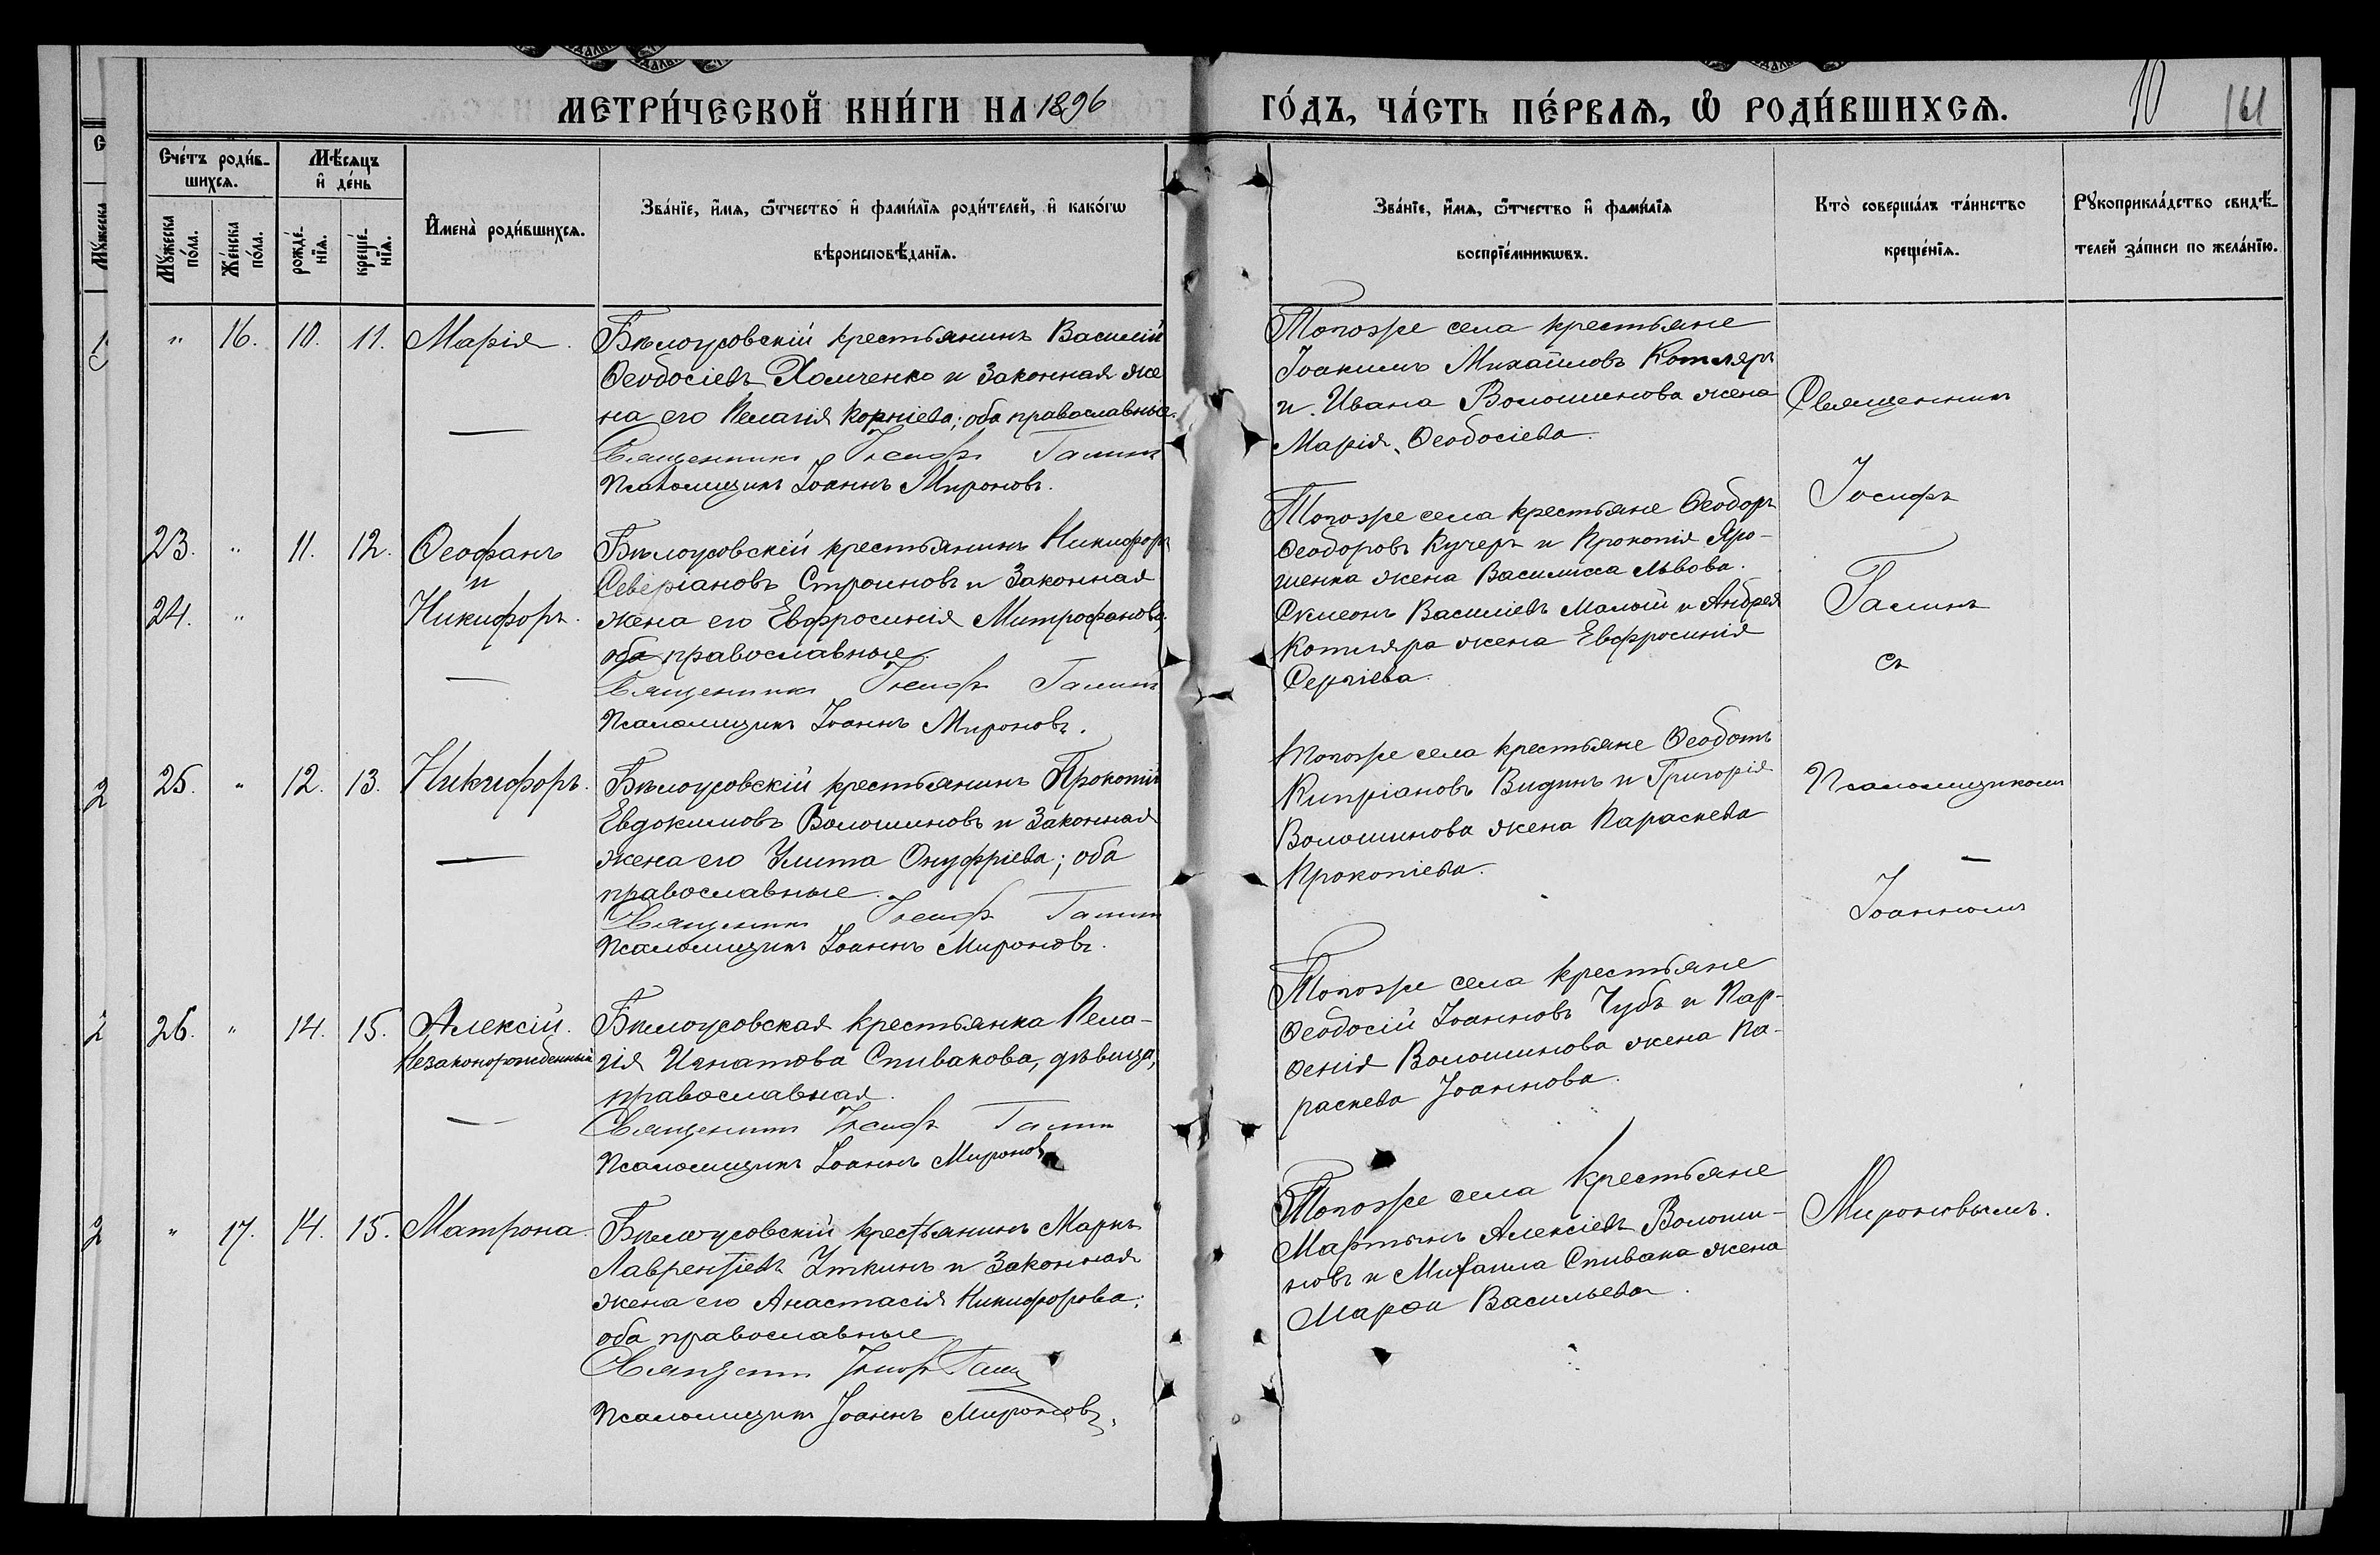 МЕТРИ́ЧЕСКОЙ КНИ́ГИ НА 1896 ГО́ДЪ, ЧА́СТЬ ПЕ́РВАЯ, Ѡ РОДИ́ВШИХСЯ.
10 161
Сче́тъ роди́в-
шихся.
Мѣ́сяцъ
и де́нь
Му́жеска по́ла.
Же́нска по́ла.
рожде́нїя.
креще́нїя.
Имена̀ роди́вшихся.
Зва́нїе, и́мя, ѻ́тчество и фами́лїя роди́телей, и како́гѡ
вѣроисповѣ́данїя.
Зва́нїе, и́мя, ѻ́тчество и фами́лїя
воспрїе́мникѡвъ.
Кто̀ соверша́лъ та́инство
креще́нїя.
Рꙋкоприкла́дство свидѣ́-
телей за́писи по жела́нїю.
" 16. 10. 11. Марія.
Бѣлоусовскій крестьянинъ Василій
Ѳеодосіевъ Хомченко и законная же
на его Пелагія Корніева; оба православные.
Священникъ Іосифъ Галинъ
Псаломщикъ Іоаннъ Мироновъ.
Тогоже села крестьяне
Іоакимъ Михаиловъ Котляръ
и Ивана Волошинова жена
Марія Ѳеодосіева.
23. " 11. 12. Ѳеофанъ
и
24. " Никифоръ.
Бѣлоусовскій крестьянинъ Никифоръ
Северіановъ Строиновъ и законная
жена его Евфросинія Митрофанова;
оба православные.
Священникъ Іосифъ Галинъ
Псаломщикъ Іоаннъ Мироновъ.
Тогоже села крестьяне Ѳеодоръ
Ѳеодоровъ Кучеръ и Прокопія Яро-
шенка жена Василисса Львова.
Симеонъ Василіевъ Малый и Андрея
Котляра жена Евфросинія
Сергіева.
25. " 12. 13. Никифоръ.
Бѣлоусовскій крестьянинъ Прокопій
Евдокимовъ Волошиновъ и законная
жена его Улита Онуфріева; оба
православные.
Священникъ Іосифъ Галинъ
Псаломщикъ Іоаннъ Мироновъ.
Тогоже села крестьяне Ѳеодотъ
Кипріановъ Видинъ и Григорія
Волошинова жена Параскева
Прокопіева.
26. " 14. 15. Алексій.
Незаконорожденный
Бѣлоусовская крестьянка Пела-
гія Игнатова Спивакова, дѣвица,
православная.
Священникъ Іосифъ Галинъ
Псаломщикъ Іоаннъ Мироновъ
Тогоже села крестьяне
Ѳеодосій Іоанновъ Чубъ и Пар-
ѳенія Волошинова жена Па-
раскева Іоаннова.
" 17. 14. 15. Матрона.
Бѣлоусовскій крестьянинъ Маркъ
Лаврентіевъ Уткинъ и законная
жена его Анастасія Никифорова;
оба православные
Священникъ Іосифъ Галинъ
Псаломщикъ Іоаннъ Мироновъ.
Тогоже села крестьяне
Мартынъ Алексіевъ Волоши-
новъ и Михаила Спивака жена
Марѳа Васильева.
Священникъ
Іосифъ
Галинъ
съ
Псаломщикомъ
Іоанномъ
Мироновымъ.